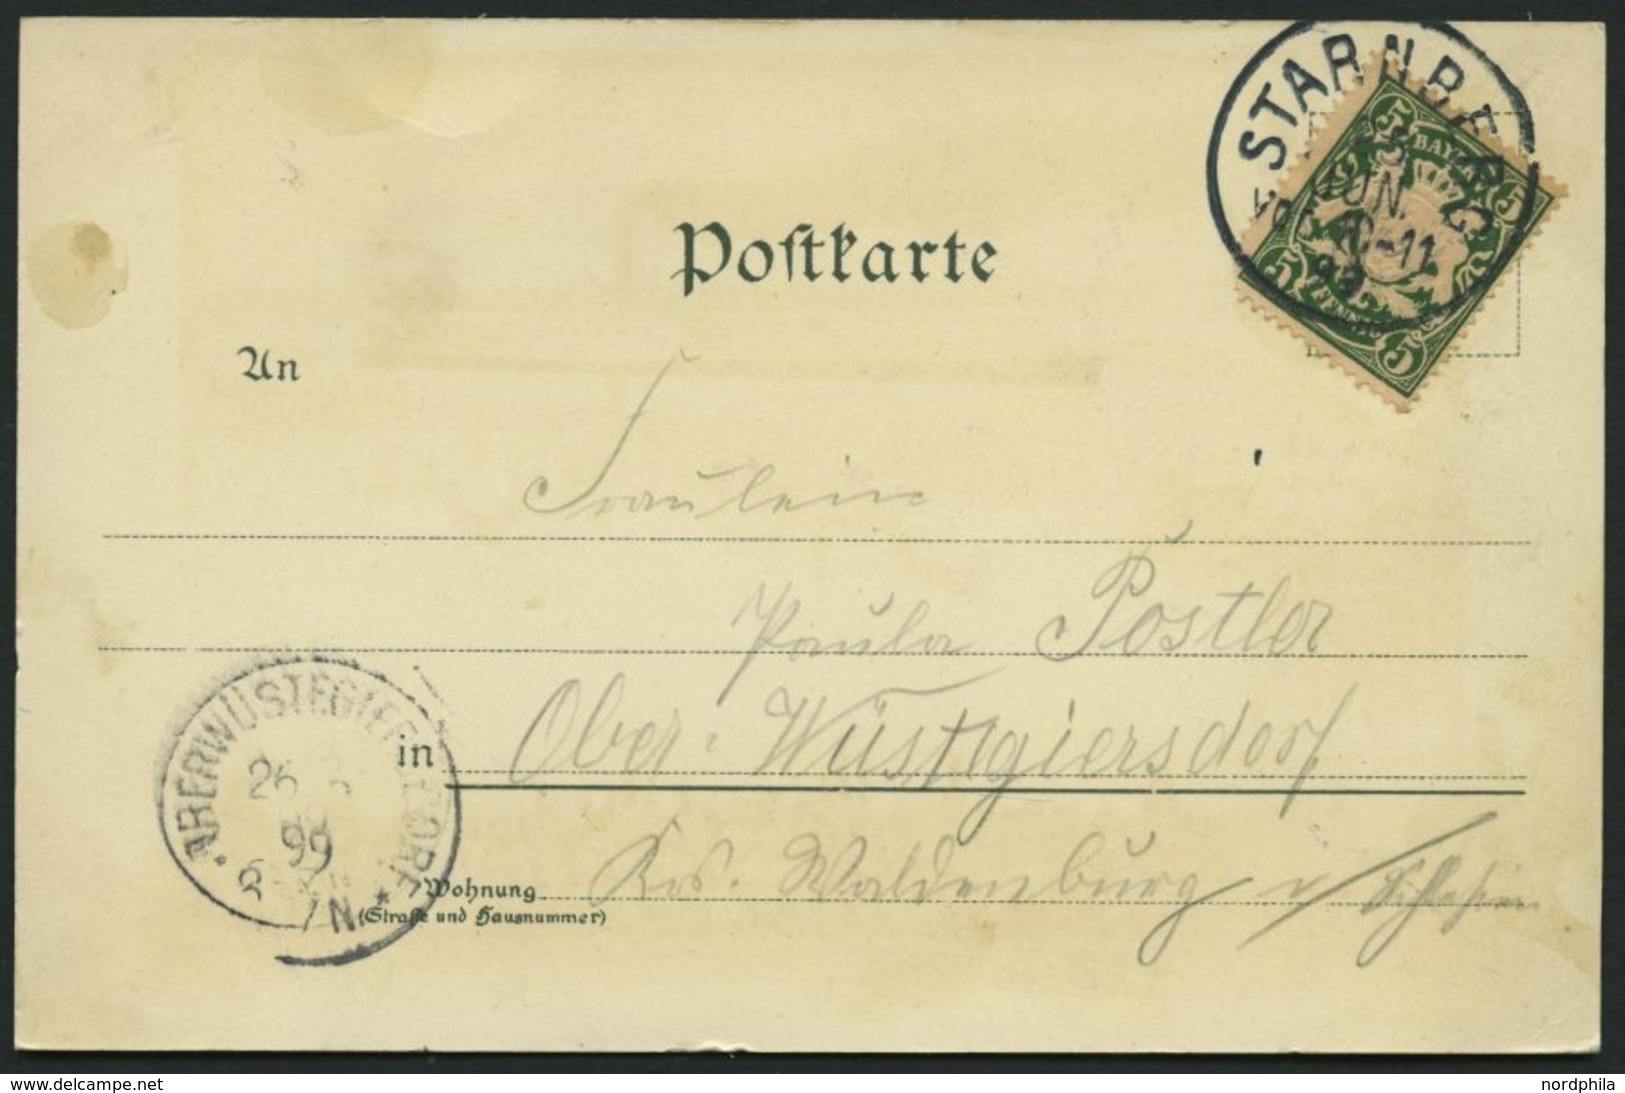 STARNBERG
JUN.
VOR. 10-11
99
5 BAYERN 5
5 5
Postkarte
An
Fräulein
Paula Postler
in Ober-Wüstegiersdorf
Wohnung Krs. Waldenburg i/Schlesien
(Straße und Hausnummer)
* OBERWÜSTEGIERSDORF *
26 6
99
N
www.delcampe.net
nordphila